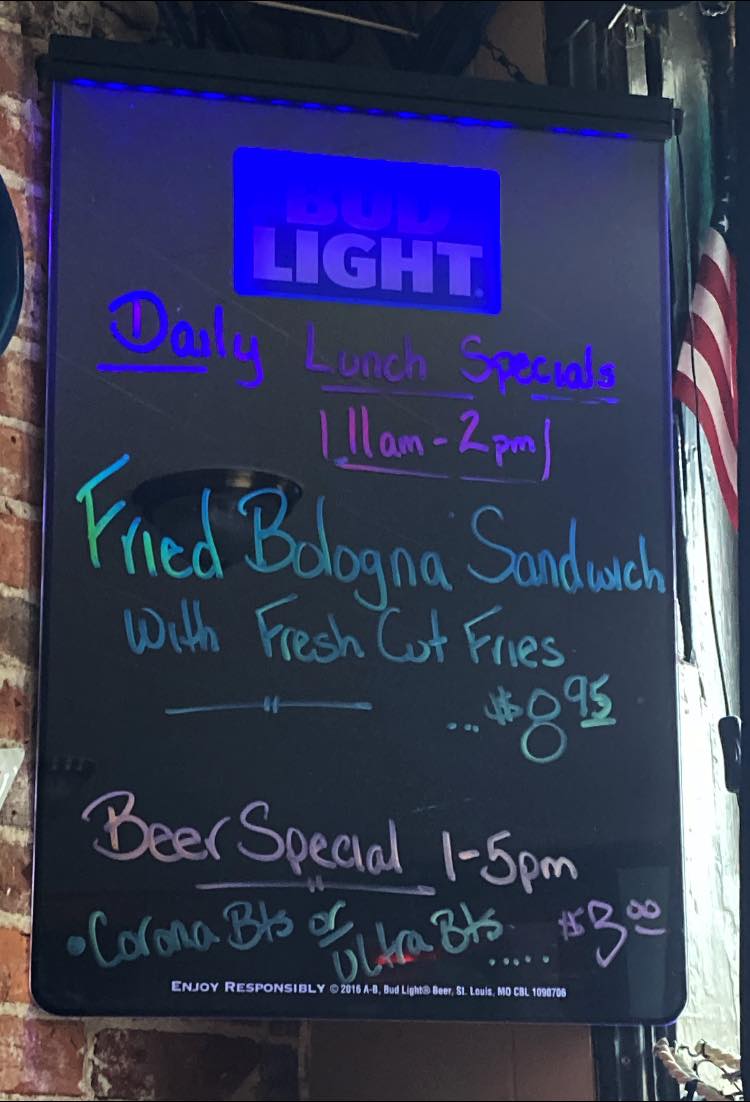 BUD
LIGHT
Daily Lunch Specials
11am-2pm
Fried Bologna Sandwich
with Fresh Cut Fries
... $8.95
Beer Special 1-5pm
• Corona Bts or Ultra Bts ..... $3.00
ENJOY RESPONSIBLY © 2016 A-B, Bud Light® Beer, St. Louis, MO CBL 1090706